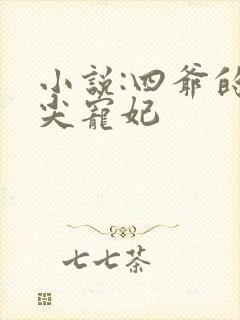 小説:四爺的
尖寵妃
七七茶